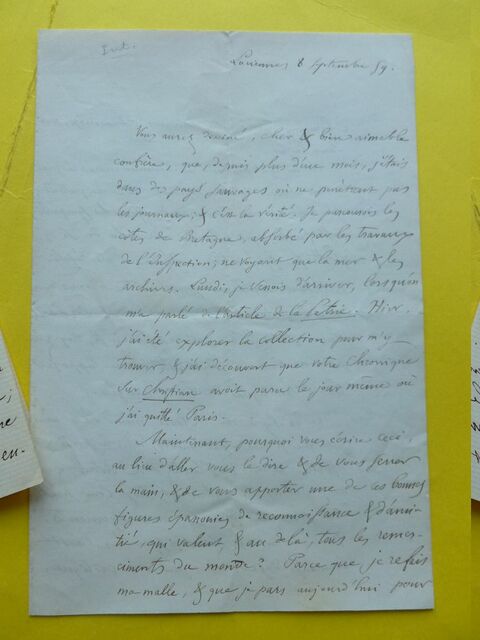 Inéd.
Louveciennes 8 Septembre 59.
Vous aurez deviné, cher & bien aimable
confrère, que, depuis plus d'un mois, j'étais
dans des pays sauvages où ne pénètrent pas
les journaux; & c'est la vérité. Je parcourais les
côtes de Bretagne, absorbé par les travaux
de l'Inspection; ne voyant que la mer & les
archives. Lundi, je venois d'arriver, lorsqu'on
m'a parlé de l'article de la Patrie. Hier,
j'ai été explorer la collection pour m'y
trouver, & j'ai découvert que votre Chronique
sur Christian avoit paru le jour même où
j'ai quitté Paris.
Maintenant, pourquoi vous écrire ceci
au lieu d'aller vous le dire & de vous serrer
la main, & de vous apporter une de ces bonnes
figures épanouies de reconnaissance & d'ami-
tié, qui valent & au delà, tous les remer-
ciments du monde? Parce que je refais
ma malle, & que je pars aujourd'hui pour
;
re
en.